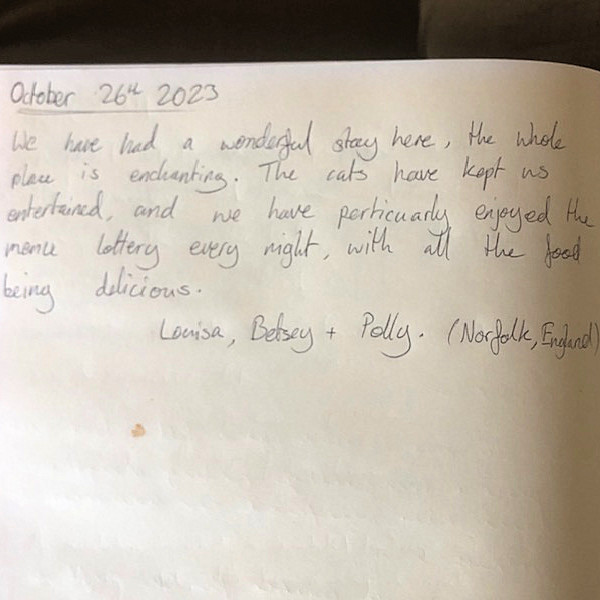 October 26th 2023
We have had a wonderful stay here, the whole
place is enchanting. The cats have kept us
entertained, and we have particuarly enjoyed the
menu lottery every night, with all the food
being delicious.
Louisa, Betsey + Polly. (Norfolk, England)